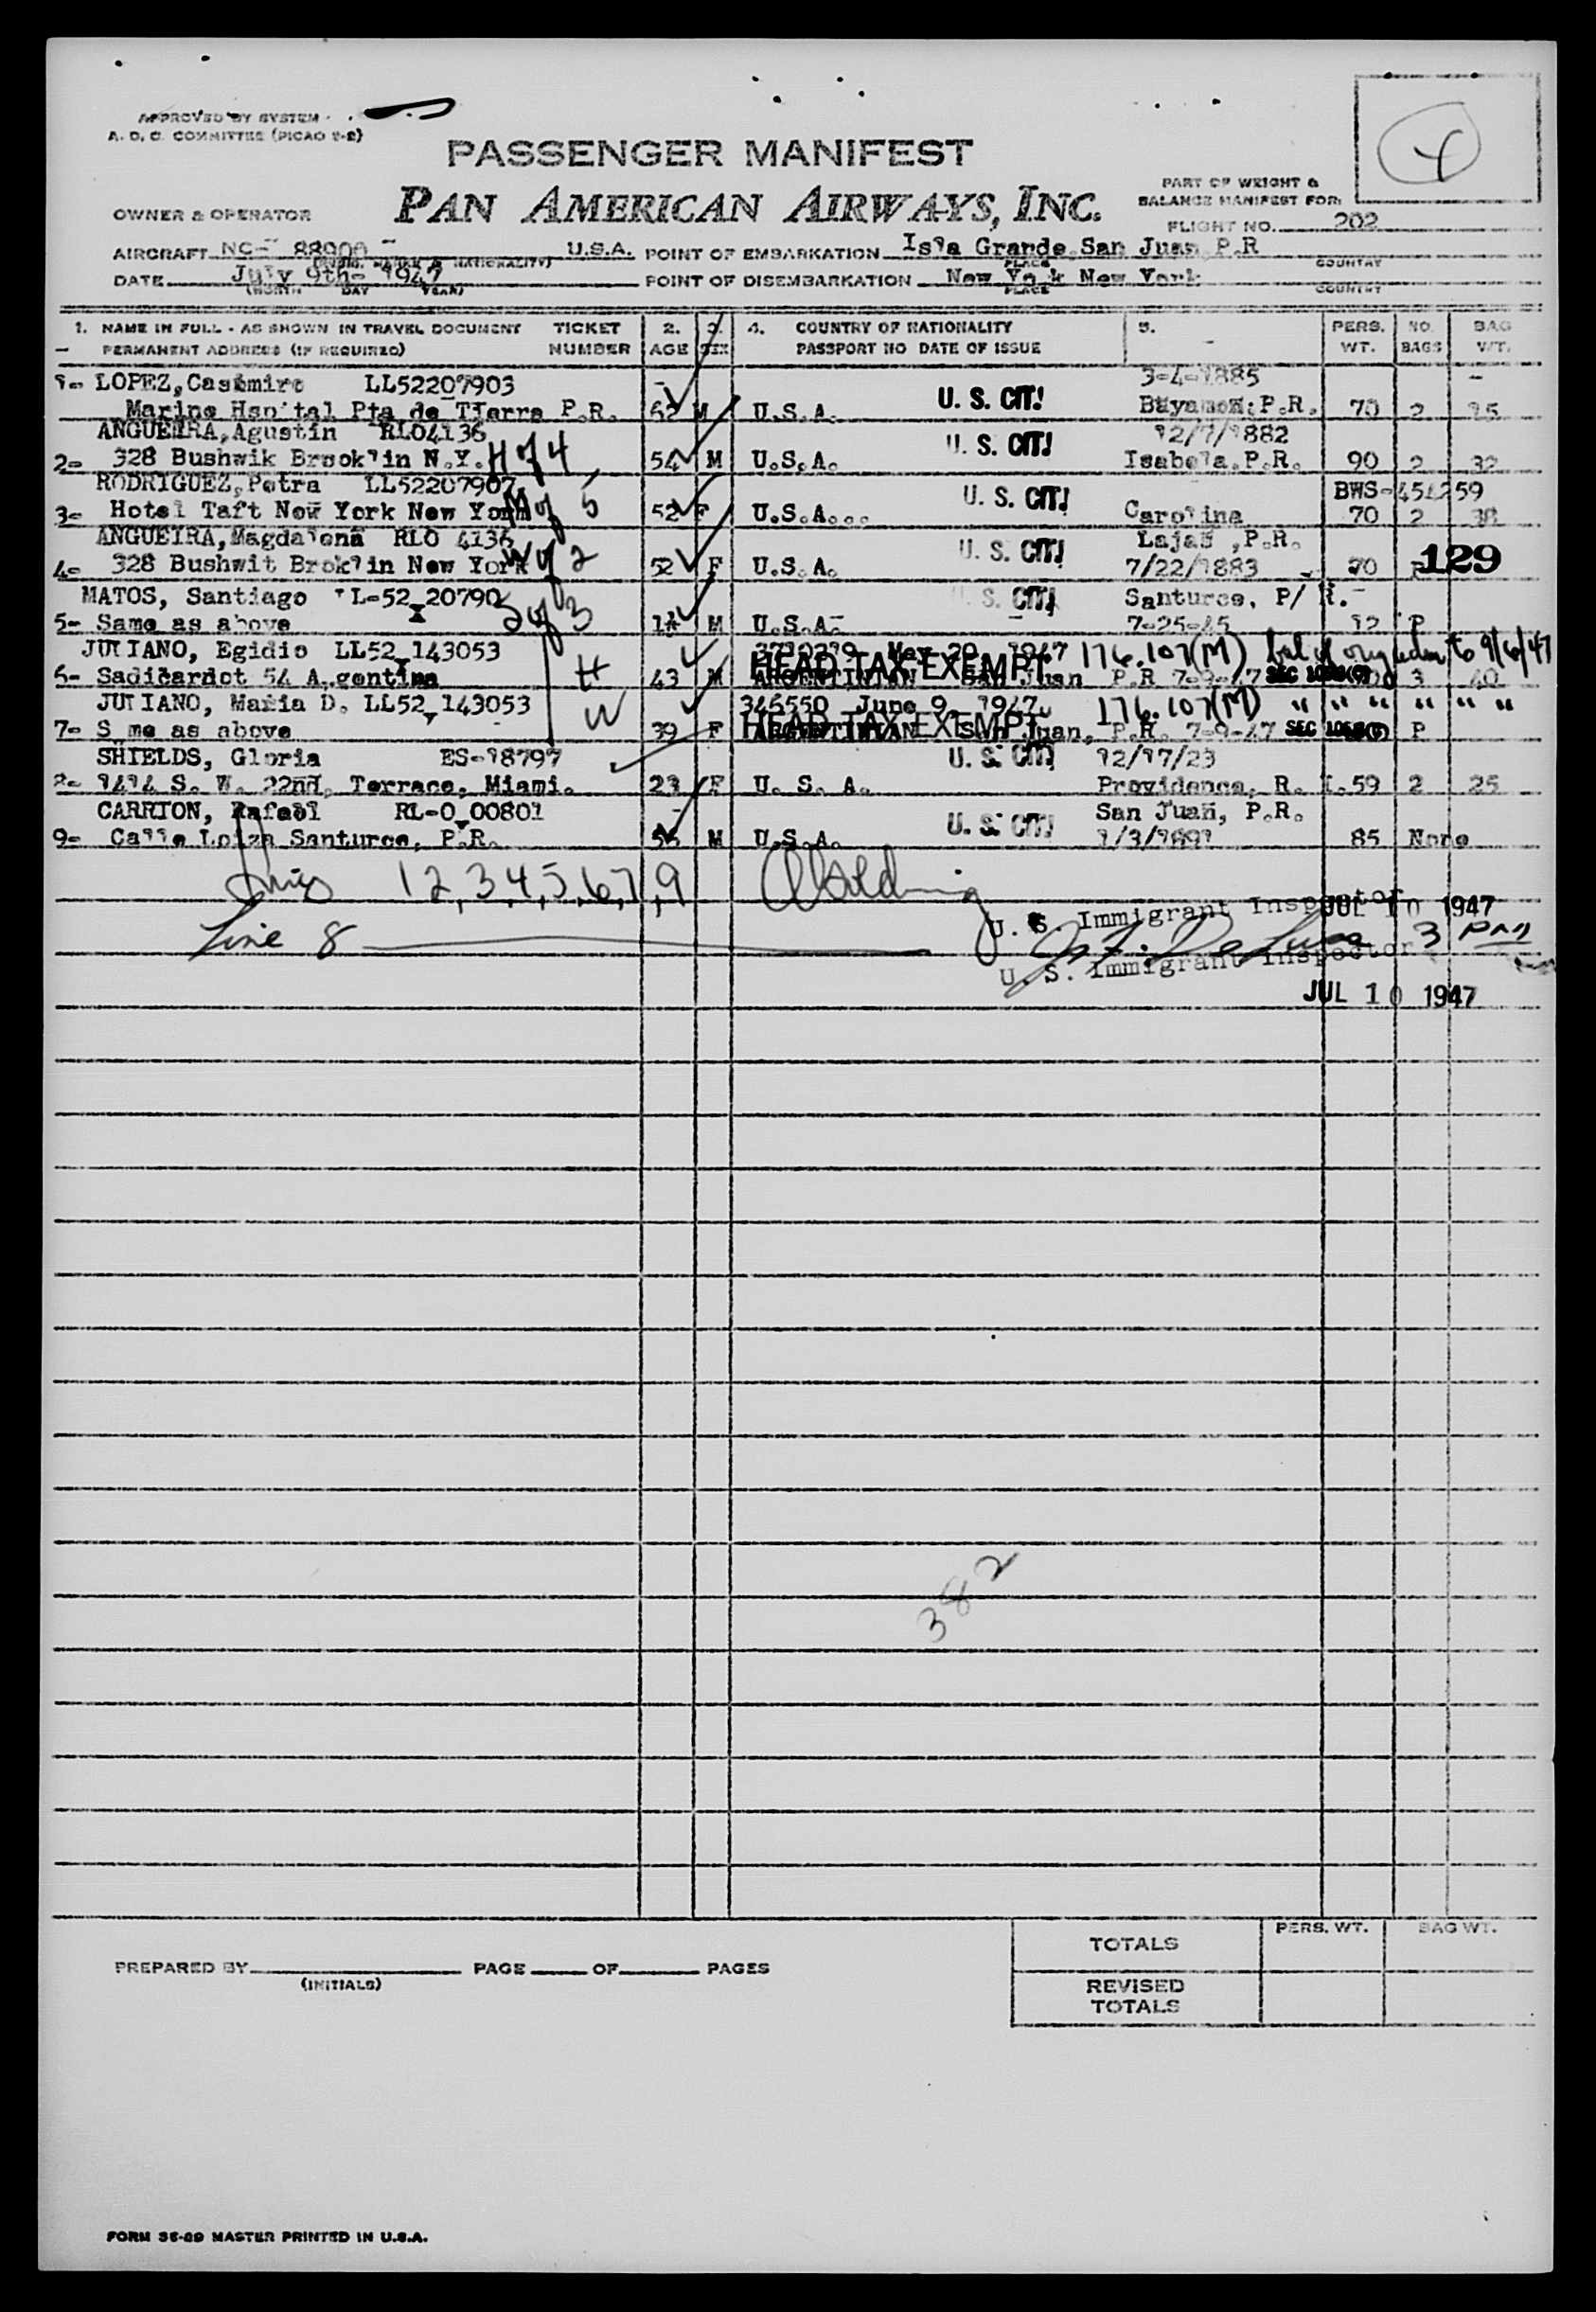 APPROVED BY SYSTEM
A. O. C. COMMITTEE (PICAO 2-2)
4
PASSENGER MANIFEST
PAN AMERICAN AIRWAYS, INC.
PART OF WEIGHT &
BALANCE MANIFEST FOR:
OWNER & OPERATOR
FLIGHT NO. 202
AIRCRAFT NC- 88900 - U.S.A. POINT OF EMBARKATION Isla Grande San Juan P.R
PLACE COUNTRY
DATE July 9th- 1947 POINT OF DISEMBARKATION New Yo k New York
(MONTH DAY YEAR) PLACE COUNTRY
1. NAME IN FULL - AS SHOWN IN TRAVEL DOCUMENT TICKET 2. 3. 4. COUNTRY OF NATIONALITY 5. PERS. NO. BAG
PERMANENT ADDRESS (IF REQUIRED) NUMBER AGE SEX PASSPORT NO DATE OF ISSUE WT. BAGS WT.
1- LOPEZ, Casimiro LL52207903 3-4-1885
Marine Hspital Pta de Tierra P.R. 62 M U.S.A. U. S. CIT! Bayamon, P.R. 70 2 15
ANGUEIRA, Agustin RLO4136 12/7/1882
2- 328 Bushwik Brooklin N.Y. H of 4 54 M U.S.A. U. S. CIT! Isabela, P.R. 90 2 32
RODRIGUEZ, Petra LL52207907 BWS-454259
3- Hotel Taft New York New York M of 5 52 F U.S.A... U. S. CIT! Carolina 70 2 38
ANGUEIRA, Magdalena RLO 4136 Lajas ,P.R.
4- 328 Bushwit Broklin New York W of 2 52 F U.S.A. U. S. CIT! 7/22/1883 70 P 129
MATOS, Santiago LL-52 20790 Santurce, P/ R.
5- Same as above S of 3 M U.S.A. U. S. CIT! 7-25-45 12 P
JULIANO, Egidio LL52 143053 May 20, 1947 176.107(M) bal of orig adm to 9/6/47
6- Sadicardot 54 A gentina H 43 M HEAD TAX EXEMPT ARGENTINIAN San Juan P.R 7-9-47 SEC 3 40
JULIANO, Maria D. LL52 143053 346550 June 9, 1947. 176.107(M) " " " " " "
7- S me as above W 39 F HEAD TAX EXEMPT ARGENTINIAN San Juan, P.R. 7-9-47 SEC P
SHIELDS, Gloria ES-18797 12/17/23
8- 1414 S. W. 22nd, Terrace, Miami. 23 F U. S. A. U. S. CIT! Providence, R. I. 59 2 25
CARRION, Rafael RL-0 00801 San Juan, P.R.
9- Calle Loiza Santurce, P.R. 56 M U.S.A. U. S. CIT! 1/3/1891 85 None
Lines 1,2,3,4,5,6,7,9
U. S. Immigrant Inspector JUL 10 1947
Line 8 3 PM
U. S. Immigrant Inspector
JUL 10 1947
382
TOTALS PERS. WT. BAG WT.
PREPARED BY PAGE OF PAGES
(INITIALS)
REVISED
TOTALS
FORM 36-09 MASTER PRINTED IN U.S.A.